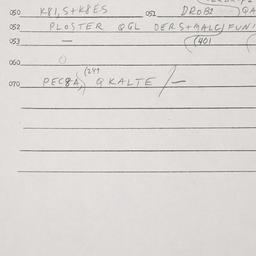 050 K81,S+K8ES 051 DROB2
052 PLOSTER QGL DERS+MALC FUNI
053 — (401
060
070 PEC8A, (249 QKALTE /—